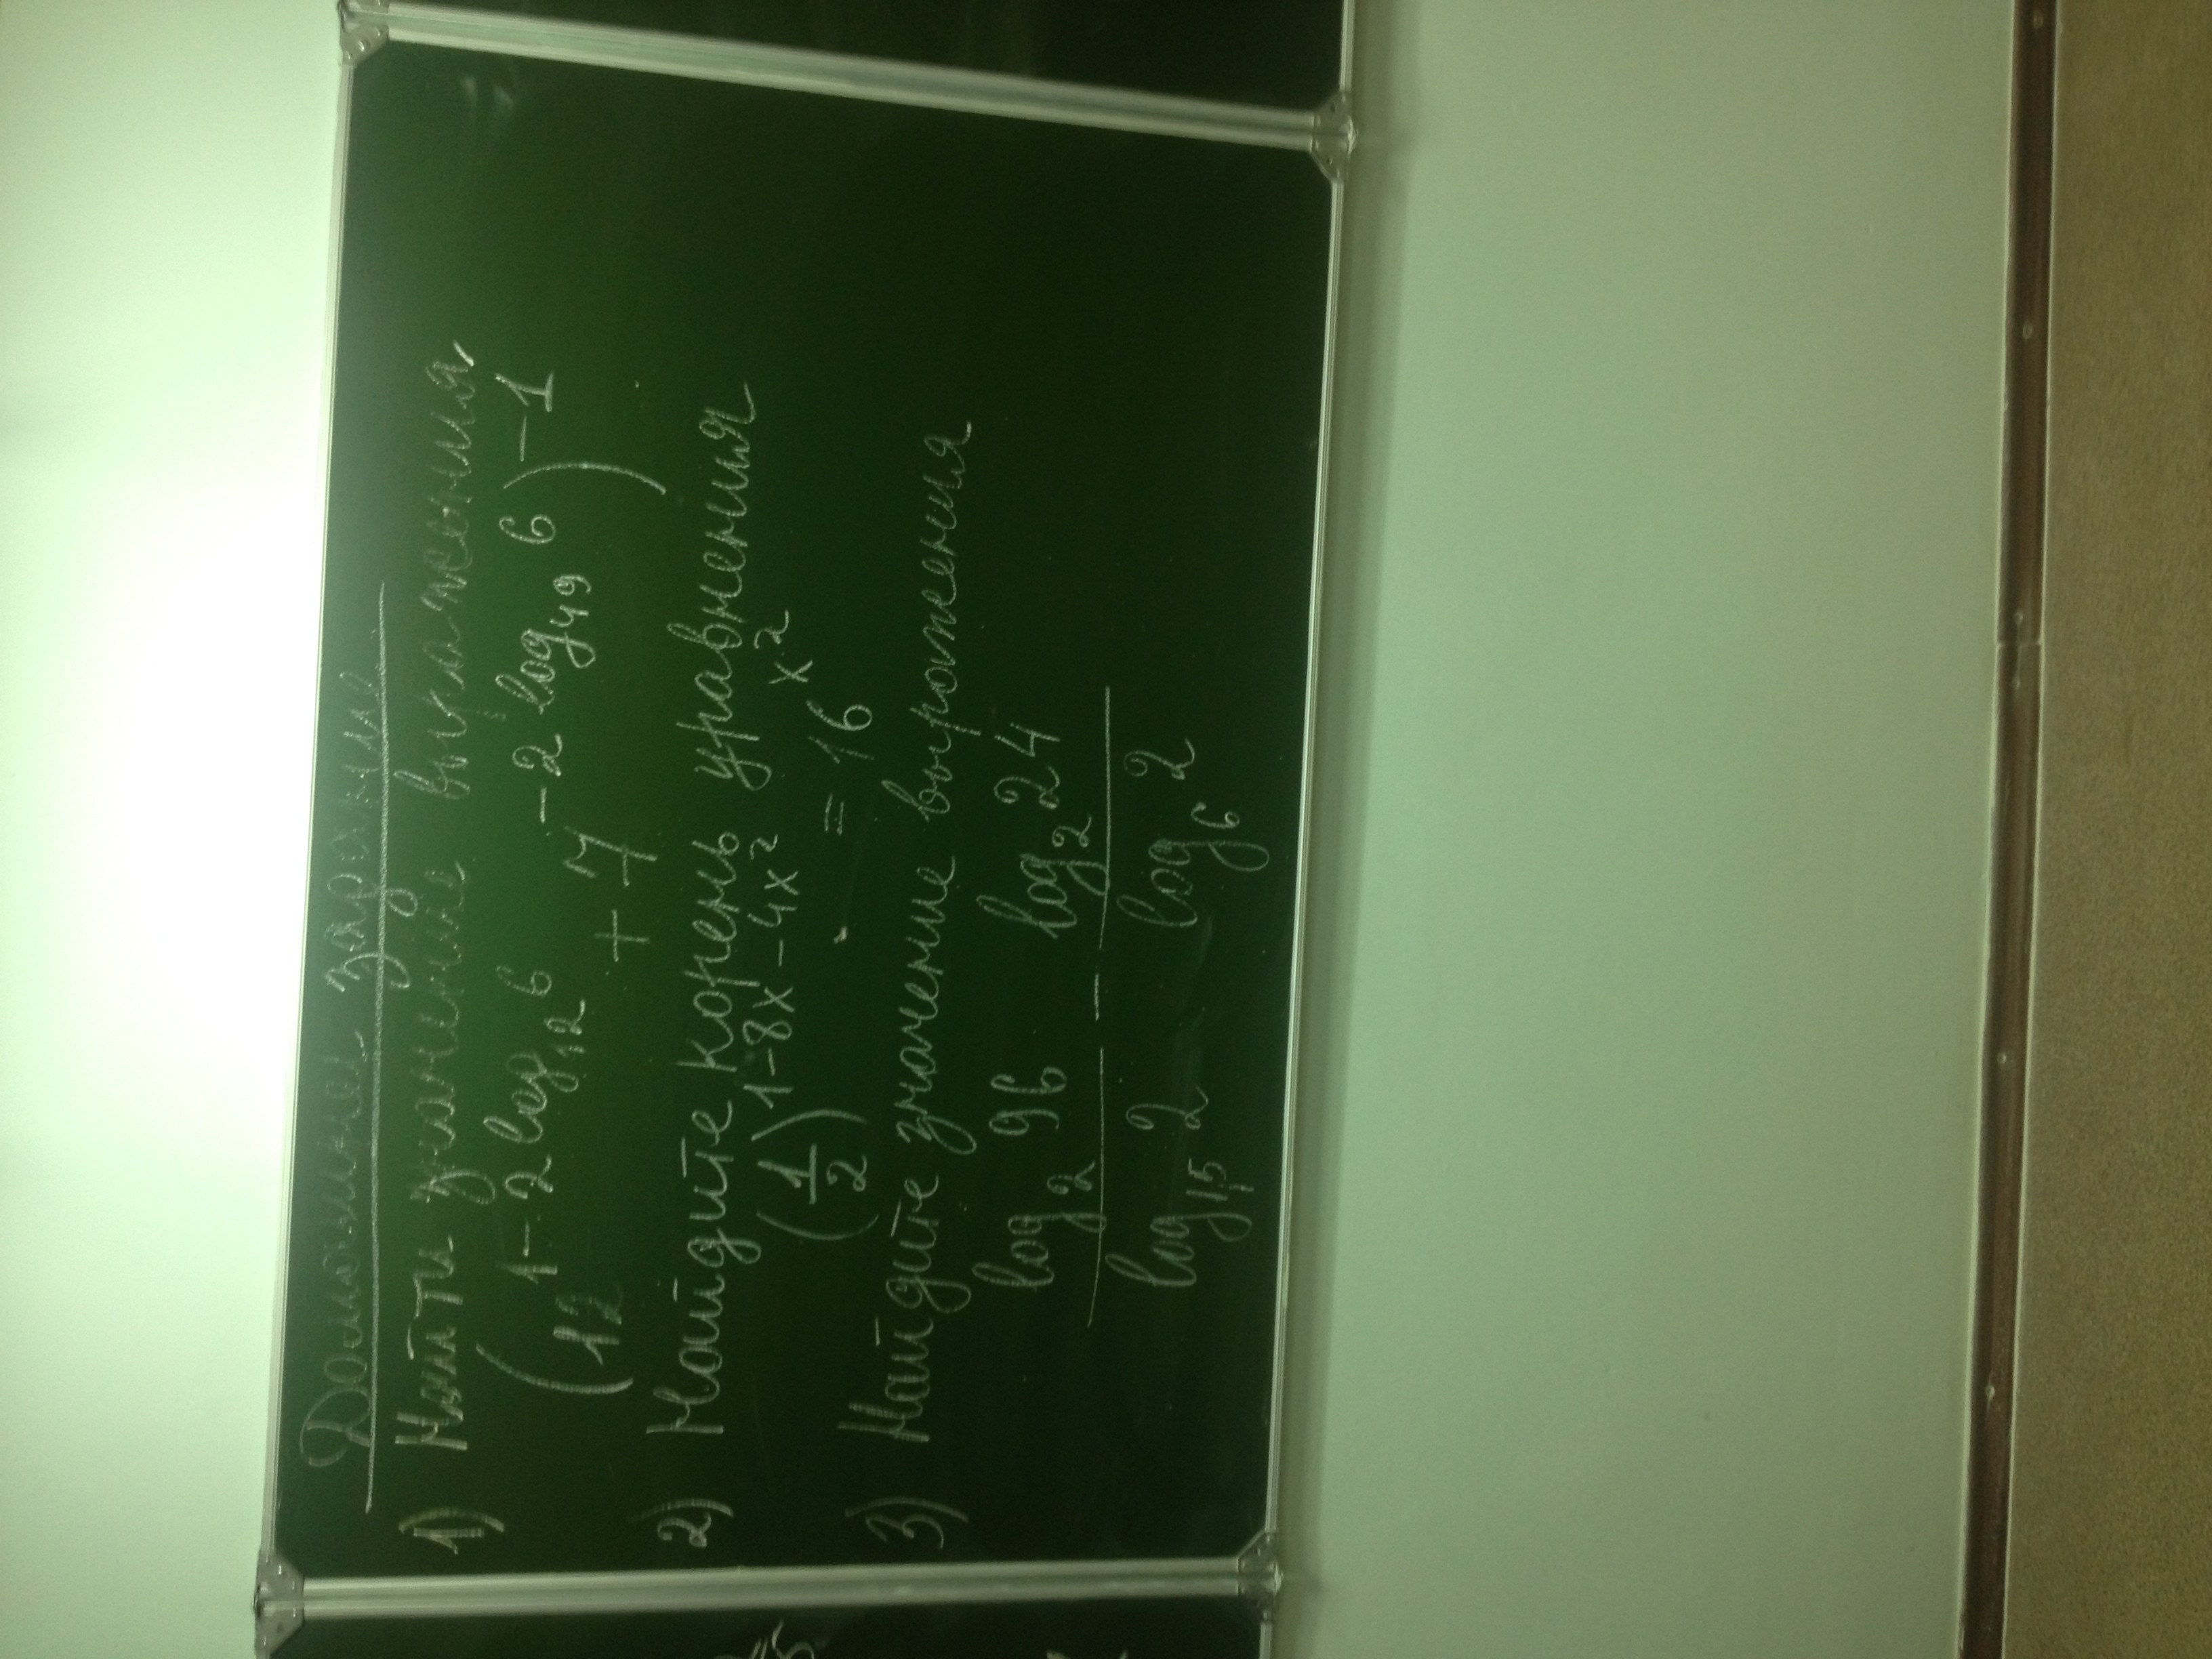 Домашнее задание
1) Найти значение выражения
(12^{1-2 log_{12} 6} + 7^{-2 log_{49} 6})^{-1}
2) Найдите корень уравнения
(1/2)^{1-8x-4x^2} = 16^{x^2}
3) Найдите значение выражения
log_2 96 / log_{1,5} 2 - log_2 24 / log_6 2